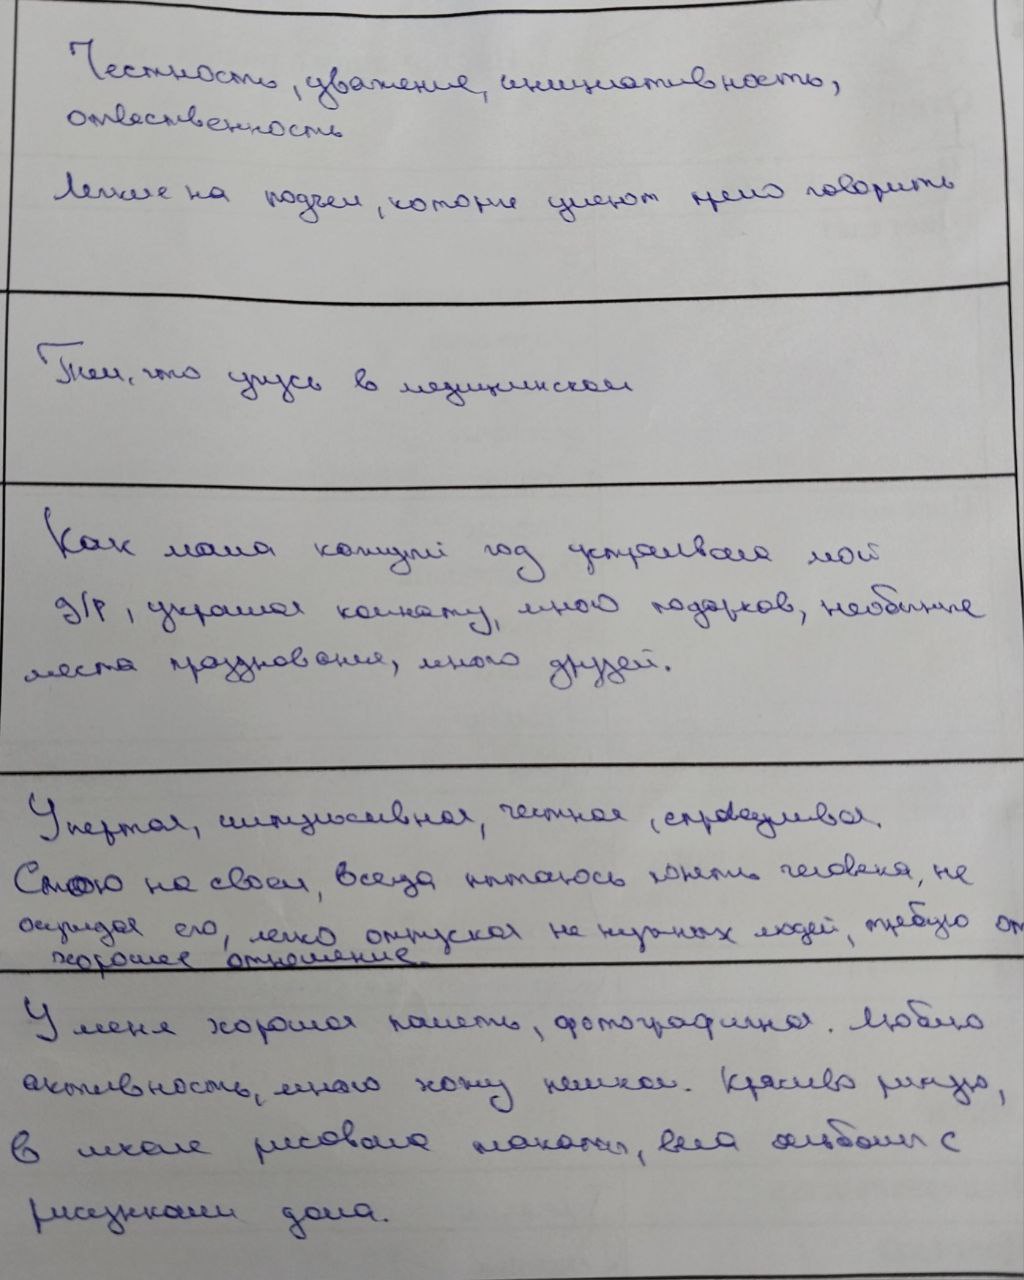 Честность, уважение, инициативность,
ответственность
Легкие на подъем, которые умеют прямо говорить
Тем, что учусь в медицинском
Как мама каждый год устраивала мой
д/р, украшая комнату, много подарков, необычные
места празднования, много друзей.
Упертая, импульсивная, честная, справедливая.
Стою на своем, всегда пытаюсь понять человека, не
осуждая его, легко отпуская не нужных людей, требую от
хорошее отношение.
У меня хорошая память, фотографичная. Люблю
активность, много хожу пешком. Красиво рисую,
в школе рисовала плакаты, вела альбомы с
рисунками дома.